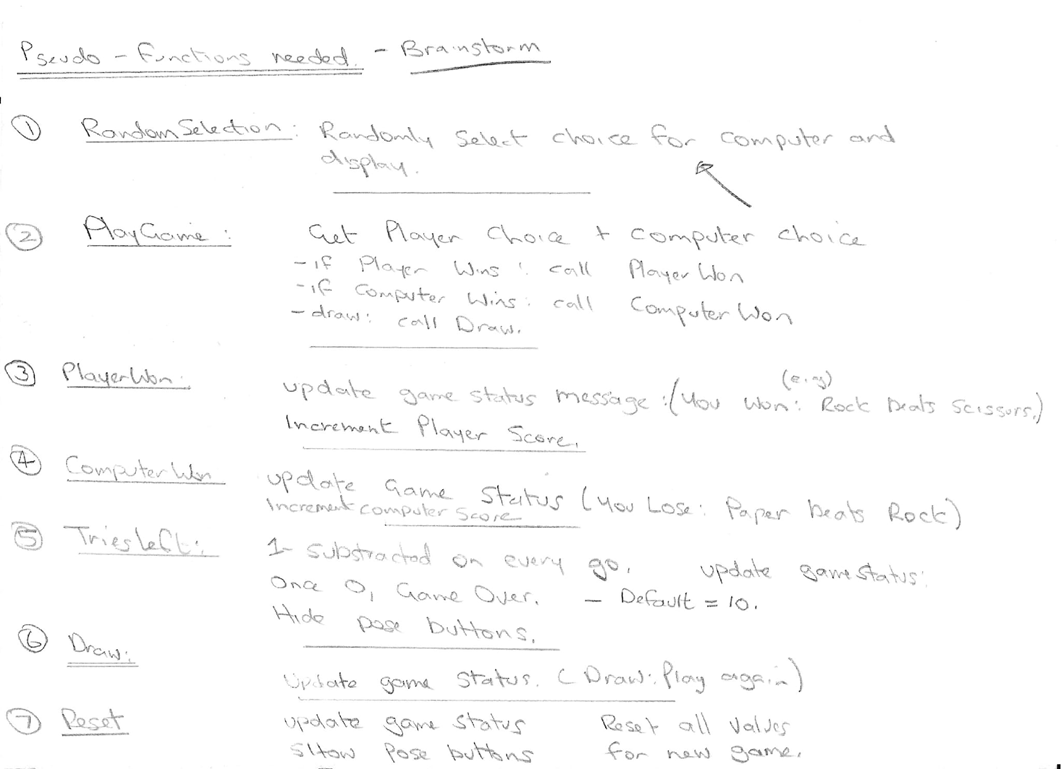 Pseudo - Functions needed. - Brainstorm
① RandomSelection: Randomly Select choice for computer and
display.
② PlayGame: Get Player Choice + computer choice
- if Player Wins: call Player Won
- if Computer Wins: call Computer Won
- draw: call Draw.
③ PlayerWon: update game status message: (You Won: Rock beats Scissors.)
(e.g)
Increment Player Score.
④ ComputerWon update Game Status (You Lose: Paper beats Rock)
Increment computer Score
⑤ TriesLeft: 1- substracted on every go. update gamestatus:
Once 0, Game Over. - Default = 10.
Hide pose buttons.
⑥ Draw:
Update game status. (Draw: Play again)
⑦ Reset update game status Reset all values
SHow Pose buttons for new game.